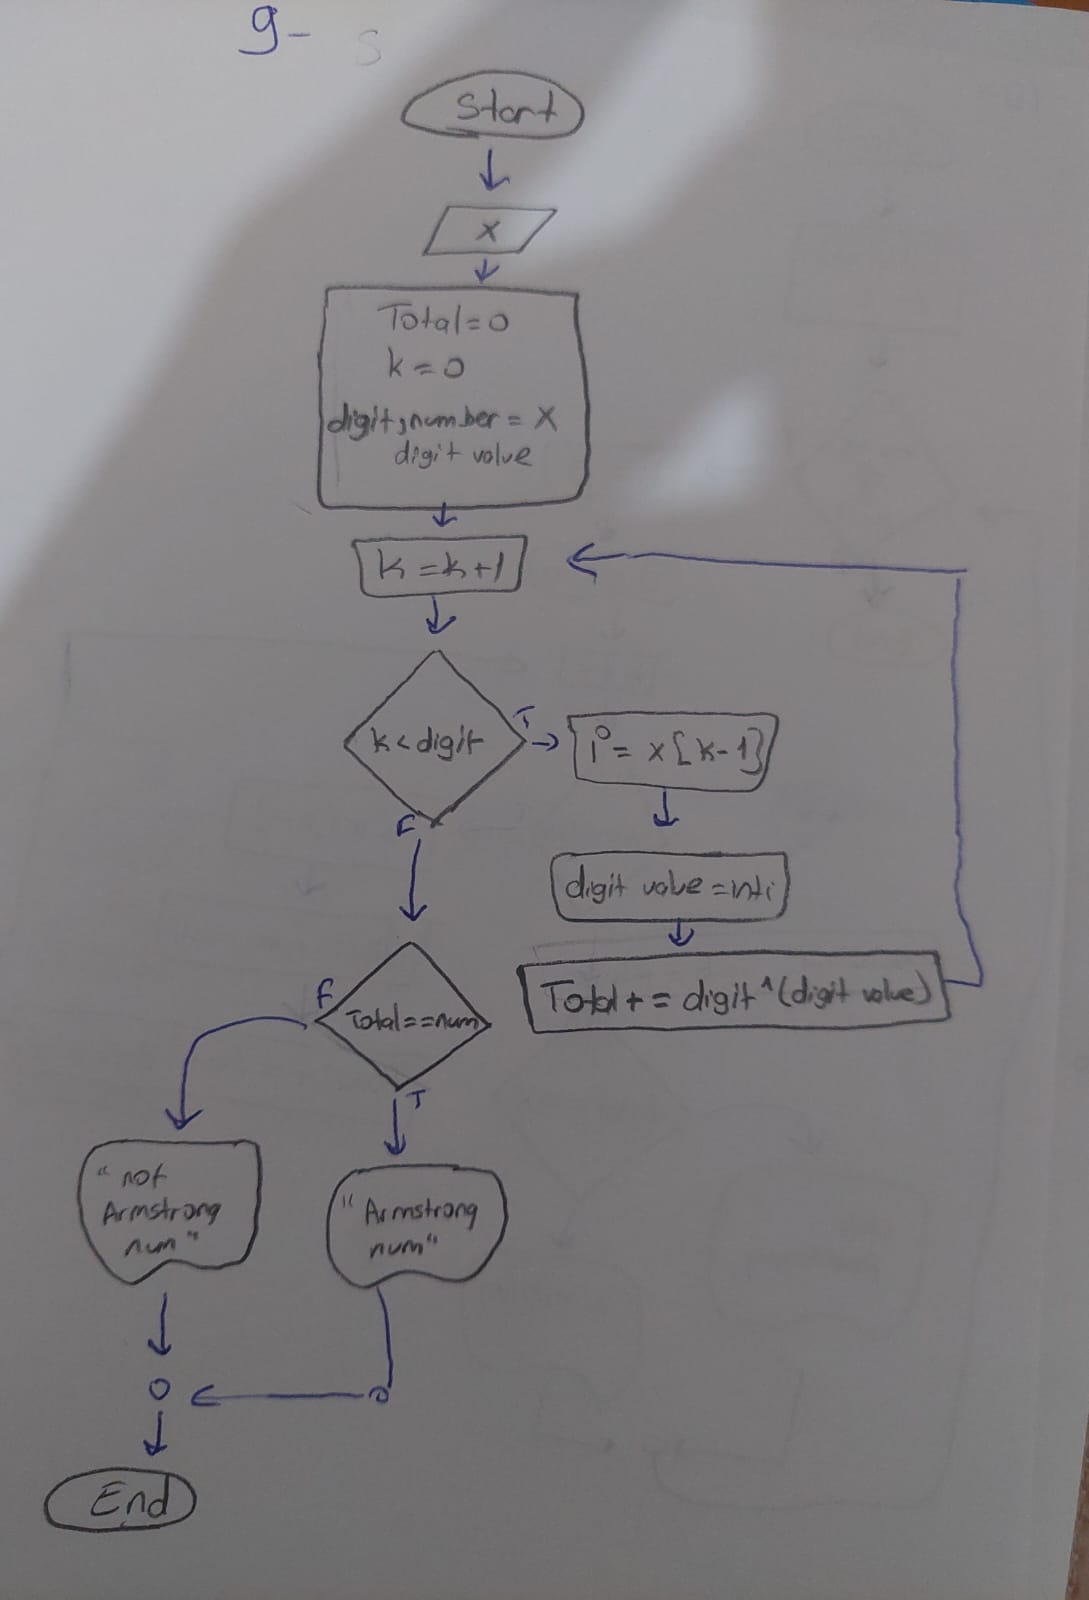 9-
S
Start
x
Total=0
k=0
digit,number = X
digit value
k=k+1
k<digit
T
i = x[k-1]
F
digit value =inti
Total+= digit^(digit value)
F
Total==num
T
"not
Armstrong
num"
"Armstrong
num"
End